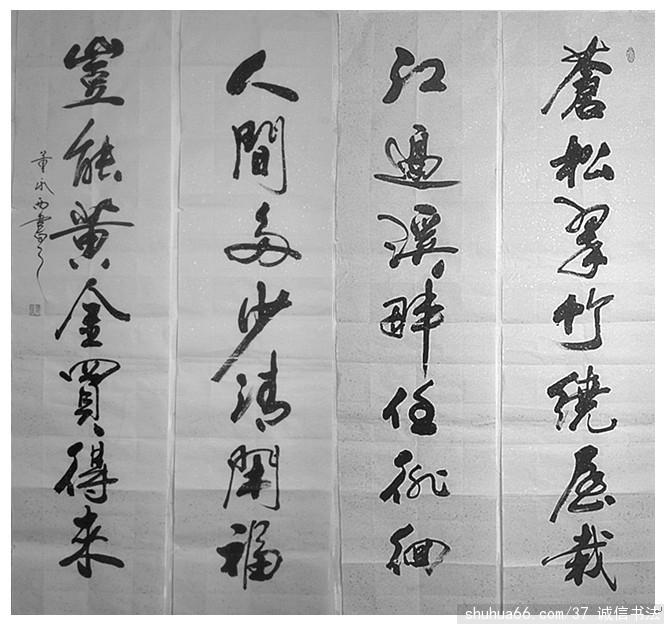 蒼松翠竹繞屋栽
江邊溪畔任徘徊
人間多少清閑福
豈能黃金買得來
shuhua66.com/37 诚信书法